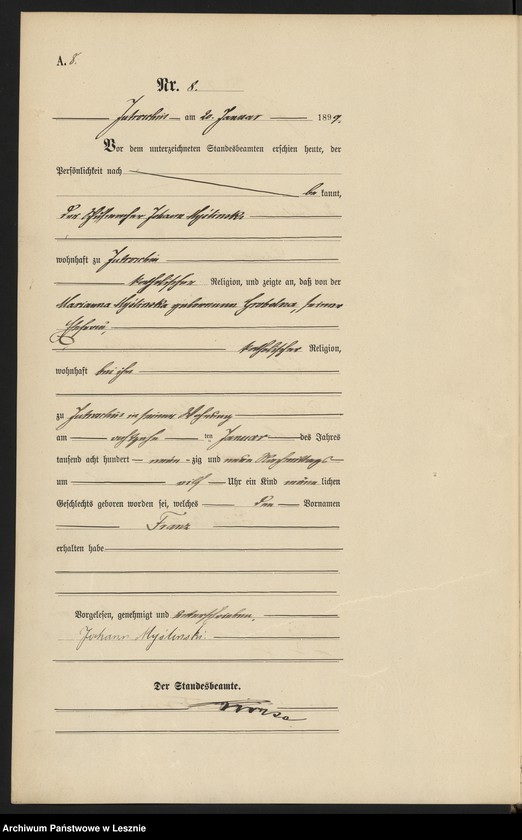 A. 8.
Nr. 8.
Jutroschin am 20. Januar 1899.
Vor dem unterzeichneten Standesbeamten erschien heute, der
Persönlichkeit nach
bekannt,
der Johann Myślinski
wohnhaft zu Jutroschin
katholischer Religion, und zeigte an, daß von der
Marianna Myślinska geborenen, seiner
Ehefrau,
katholischer Religion,
wohnhaft bei ihm
zu Jutroschin in seiner Wohnung
am achtzehn ten Januar des Jahres
tausend acht hundert neun zig und neun Nachmittags
um elf Uhr ein Kind männlichen
Geschlechts geboren worden sei, welches den Vornamen
Franz
erhalten habe
Vorgelesen, genehmigt und unterschrieben.
Johann Myślinski
Der Standesbeamte.
Archiwum Państwowe w Lesznie